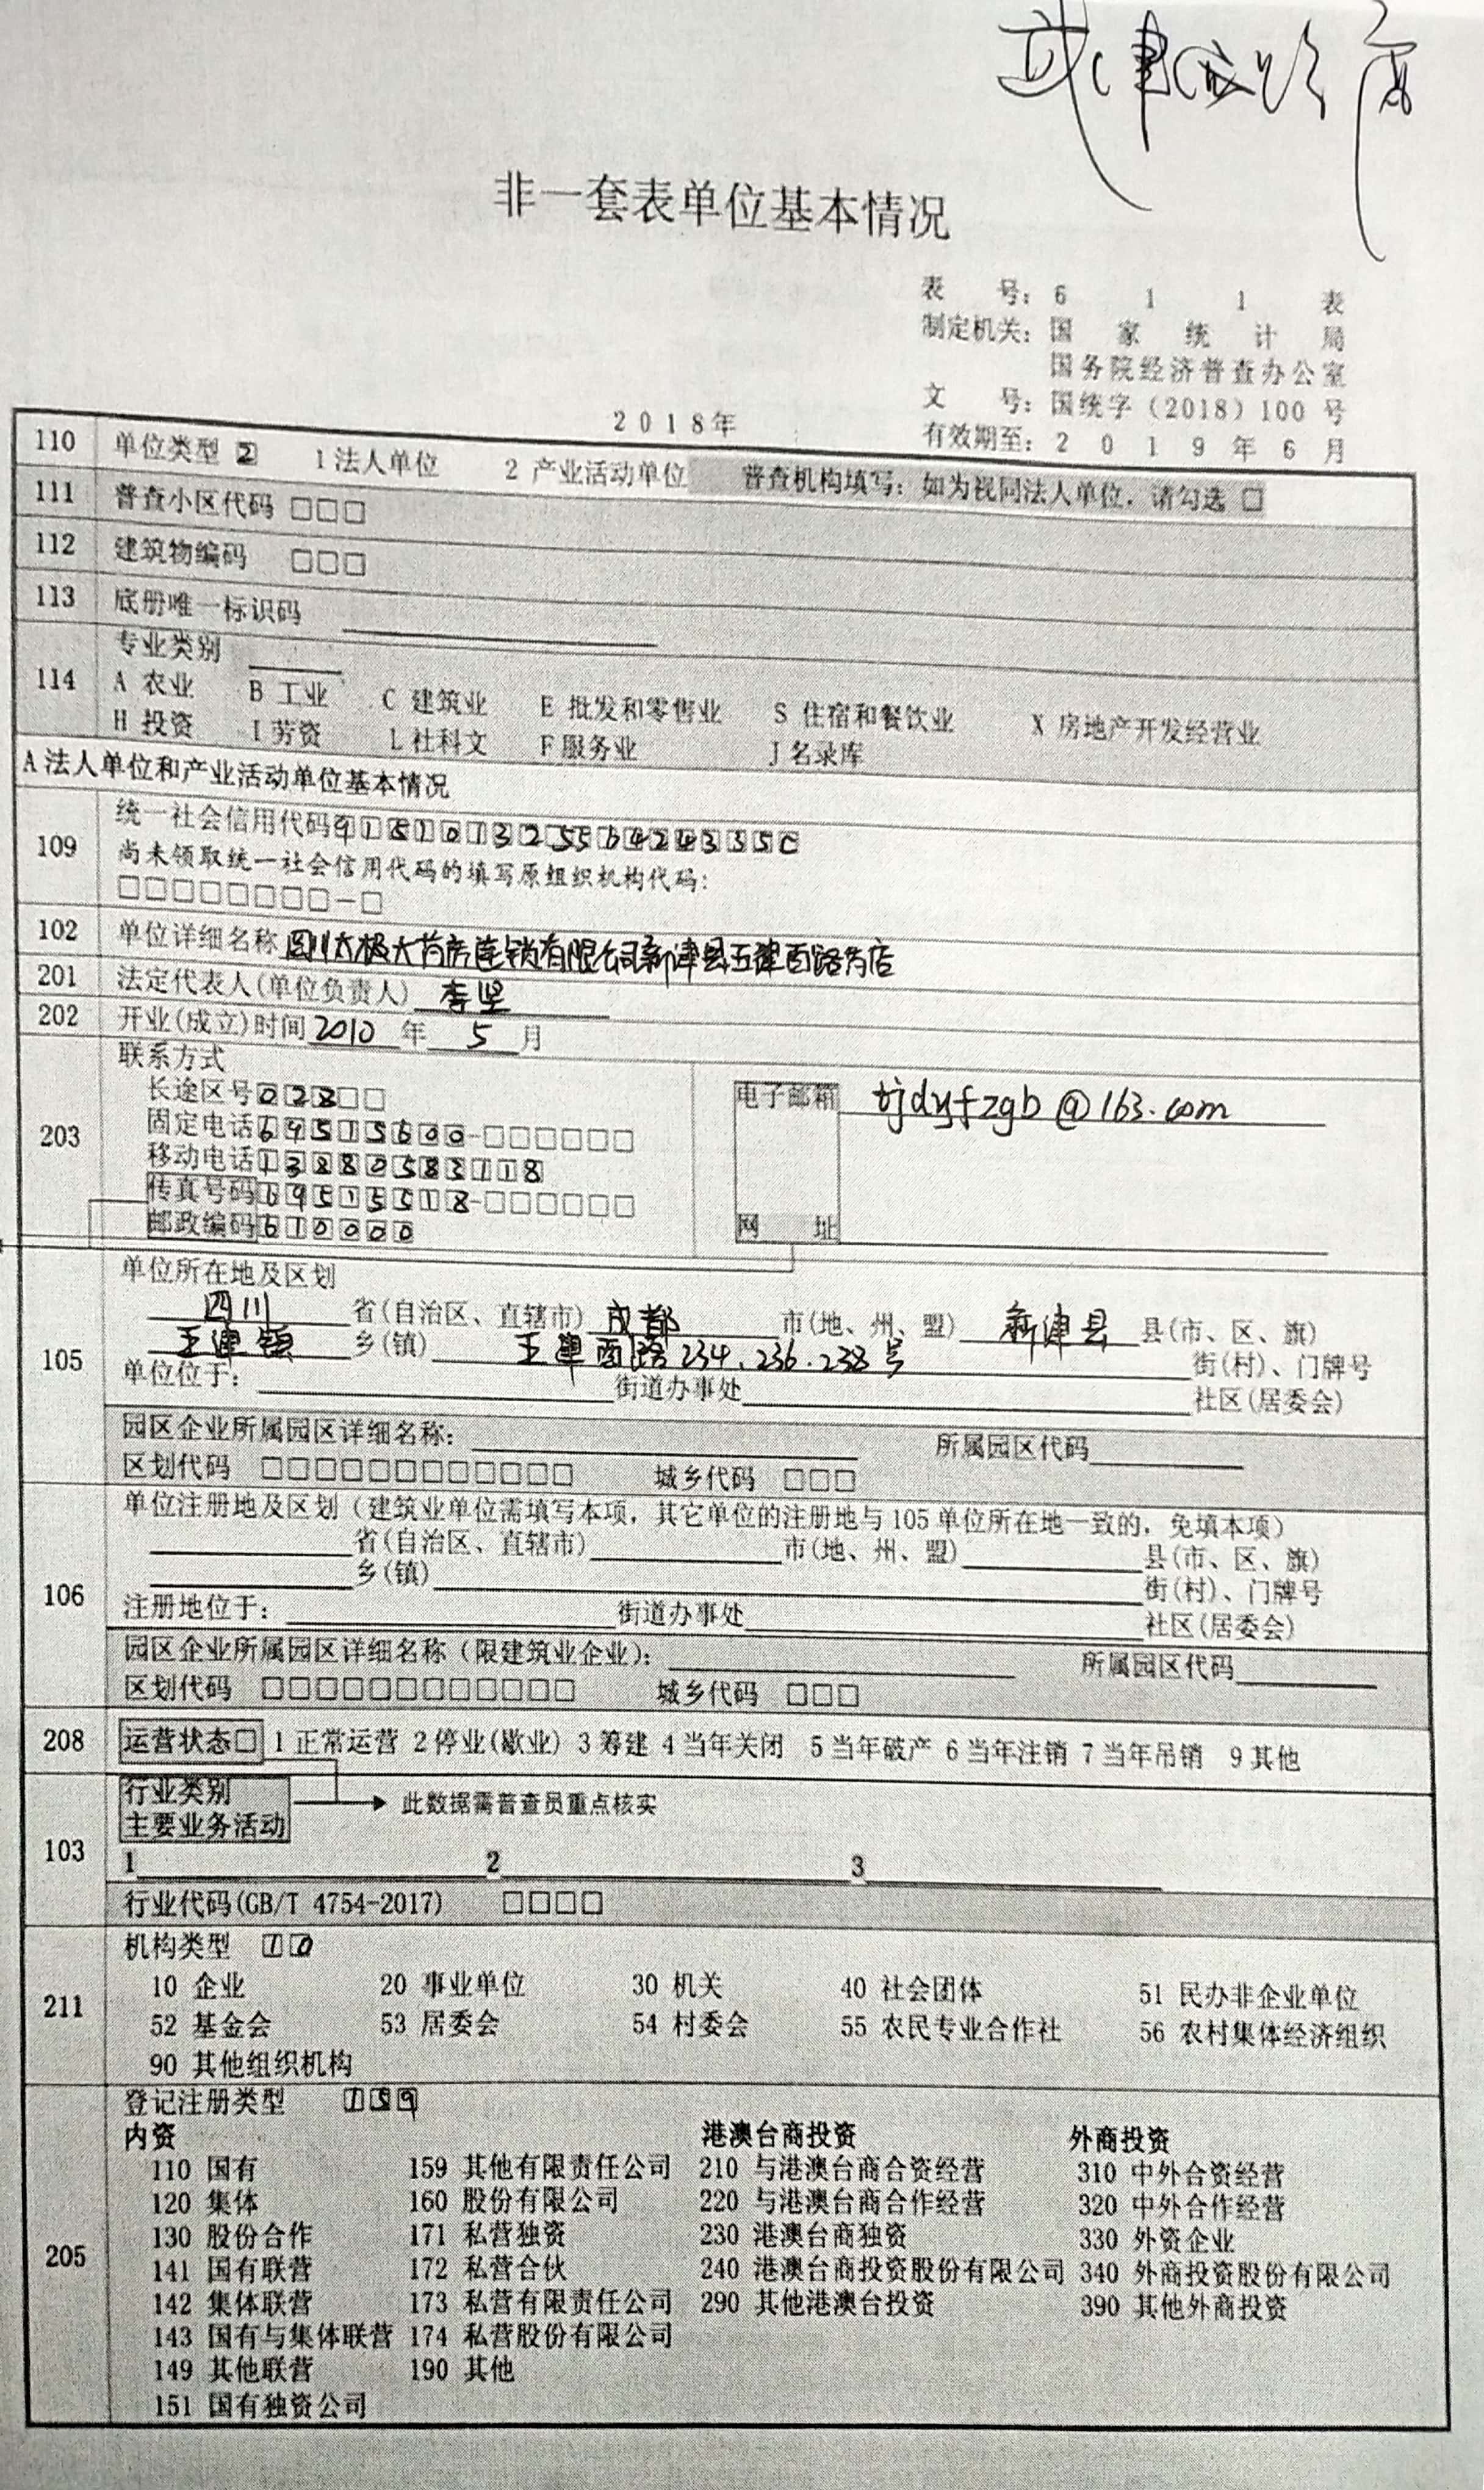 非一套表单位基本情况
表 号：6 1 1 表
制定机关：国 家 统 计 局
国务院经济普查办公室
文 号：国统字（2018）100 号
2018年
有效期至：2 0 1 9 年 6 月
110 单位类型 2 1 法人单位 2 产业活动单位 普查机构填写：如为视同法人单位，请勾选 □
111 普查小区代码 □□□
112 建筑物编码 □□□
113 底册唯一标识码
114 专业类别
A 农业 B 工业 C 建筑业 E 批发和零售业 S 住宿和餐饮业 X 房地产开发经营业
H 投资 I 劳资 L 社科文 F 服务业 J 名录库
A 法人单位和产业活动单位基本情况
109 统一社会信用代码
尚未领取统一社会信用代码的填写原组织机构代码：
□□□□□□□□-□
102 单位详细名称 四川太极大药房连锁有限公司新津县五津西路药店
201 法定代表人(单位负责人) 李坚
202 开业(成立)时间 2010 年 5 月
203 联系方式
长途区号 028□□
固定电话 69515600-□□□□□□
移动电话 13880583118
传真号码 69515518-□□□□□□
邮政编码 610000
电子邮箱 tjdyfzgb@163.com
网 址
105 单位所在地及区划
四川 省(自治区、直辖市) 成都 市(地、州、盟) 新津县 县(市、区、旗)
五津镇 乡(镇) 五津西路234.236.238号 街(村)、门牌号
单位位于： 街道办事处 社区(居委会)
园区企业所属园区详细名称： 所属园区代码
区划代码 □□□□□□□□□□□□ 城乡代码 □□□
106 单位注册地及区划（建筑业单位需填写本项，其它单位的注册地与 105 单位所在地一致的，免填本项）
省(自治区、直辖市) 市(地、州、盟) 县(市、区、旗)
乡(镇) 街(村)、门牌号
注册地位于： 街道办事处 社区(居委会)
园区企业所属园区详细名称（限建筑业企业）： 所属园区代码
区划代码 □□□□□□□□□□□□ 城乡代码 □□□
208 运营状态□ 1 正常运营 2 停业(歇业) 3 筹建 4 当年关闭 5 当年破产 6 当年注销 7 当年吊销 9 其他
103 行业类别
主要业务活动
此数据需普查员重点核实
1 2 3
行业代码(GB/T 4754-2017) □□□□
211 机构类型 10
10 企业 20 事业单位 30 机关 40 社会团体 51 民办非企业单位
52 基金会 53 居委会 54 村委会 55 农民专业合作社 56 农村集体经济组织
90 其他组织机构
205 登记注册类型 159
内资 港澳台商投资 外商投资
110 国有 159 其他有限责任公司 210 与港澳台商合资经营 310 中外合资经营
120 集体 160 股份有限公司 220 与港澳台商合作经营 320 中外合作经营
130 股份合作 171 私营独资 230 港澳台商独资 330 外资企业
141 国有联营 172 私营合伙 240 港澳台商投资股份有限公司 340 外商投资股份有限公司
142 集体联营 173 私营有限责任公司 290 其他港澳台投资 390 其他外商投资
143 国有与集体联营 174 私营股份有限公司
149 其他联营 190 其他
151 国有独资公司